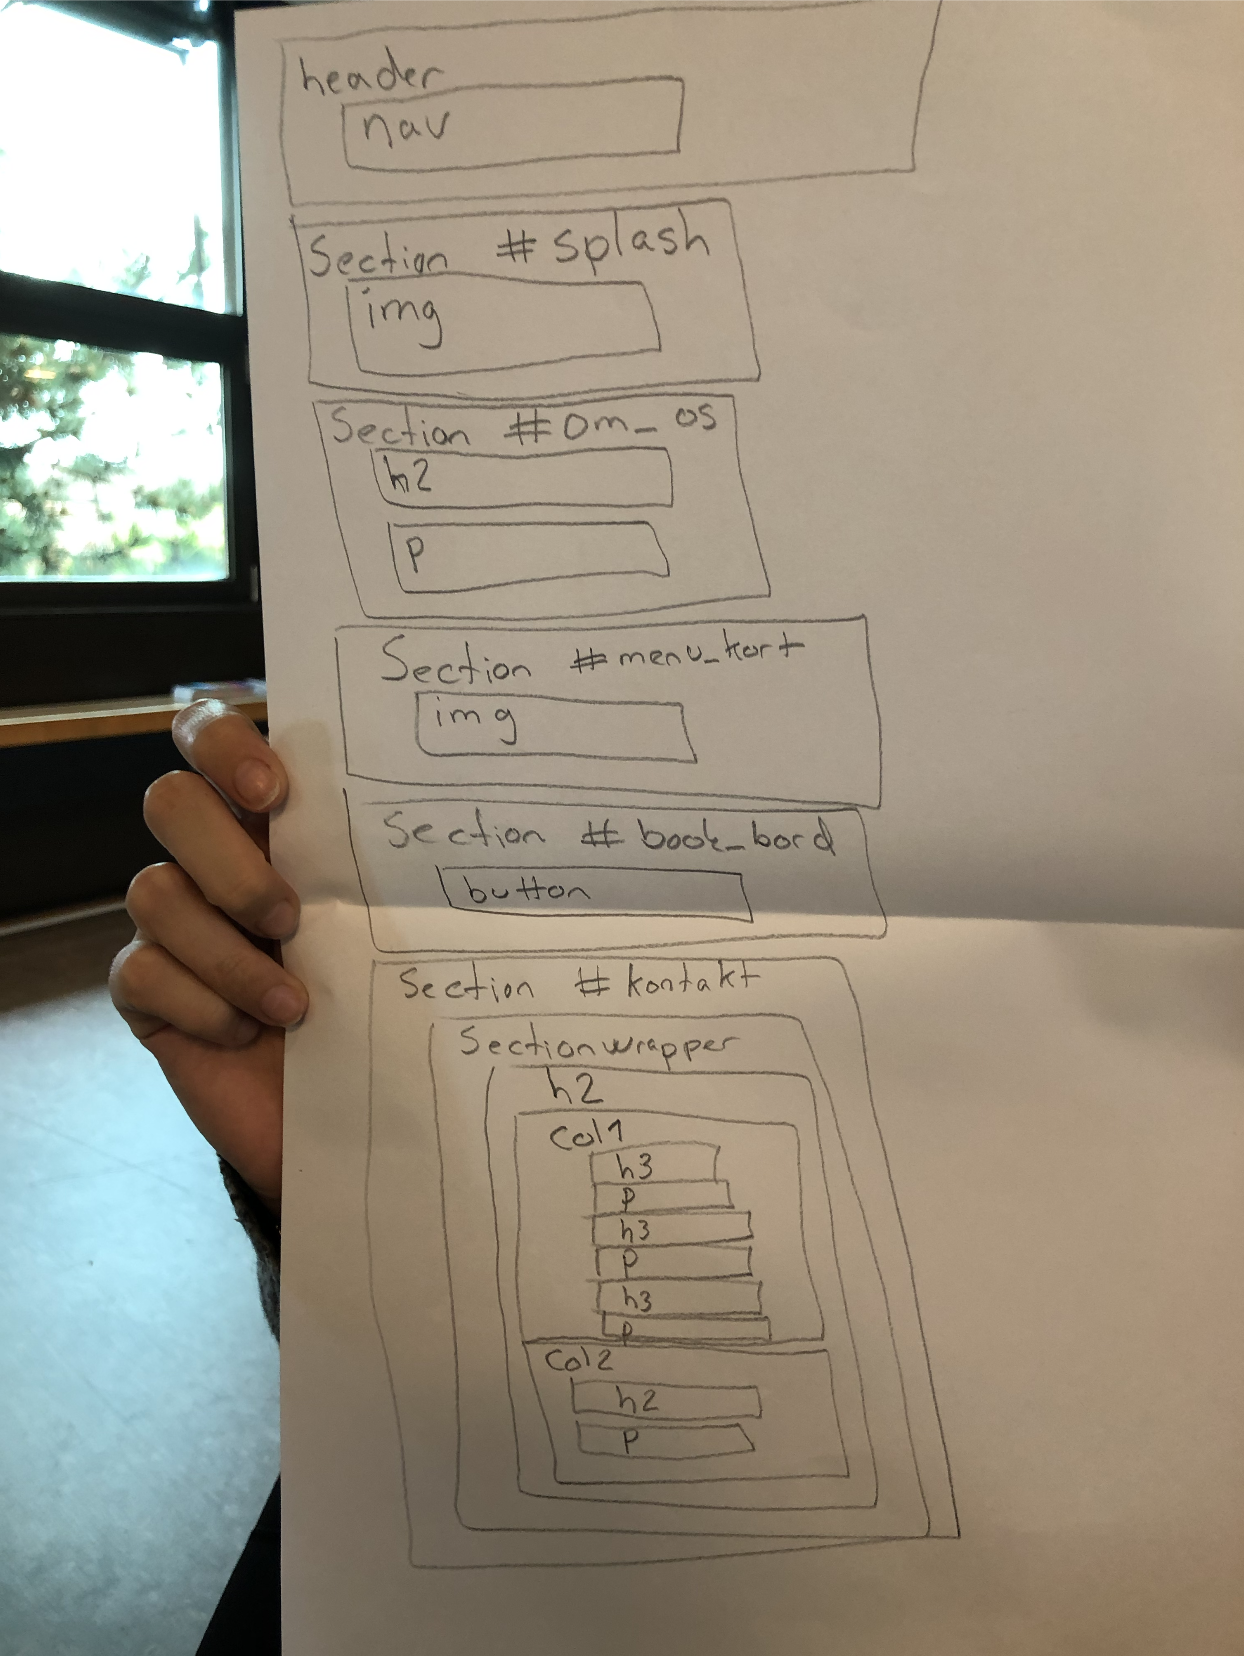 header
nav
Section # splash
img
Section # om_os
h2
p
Section # menu_kort
img
Section # book_bord
button
Section # kontakt
Sectionwrapper
h2
Col1
h3
p
h3
p
h3
p
Col2
h2
p